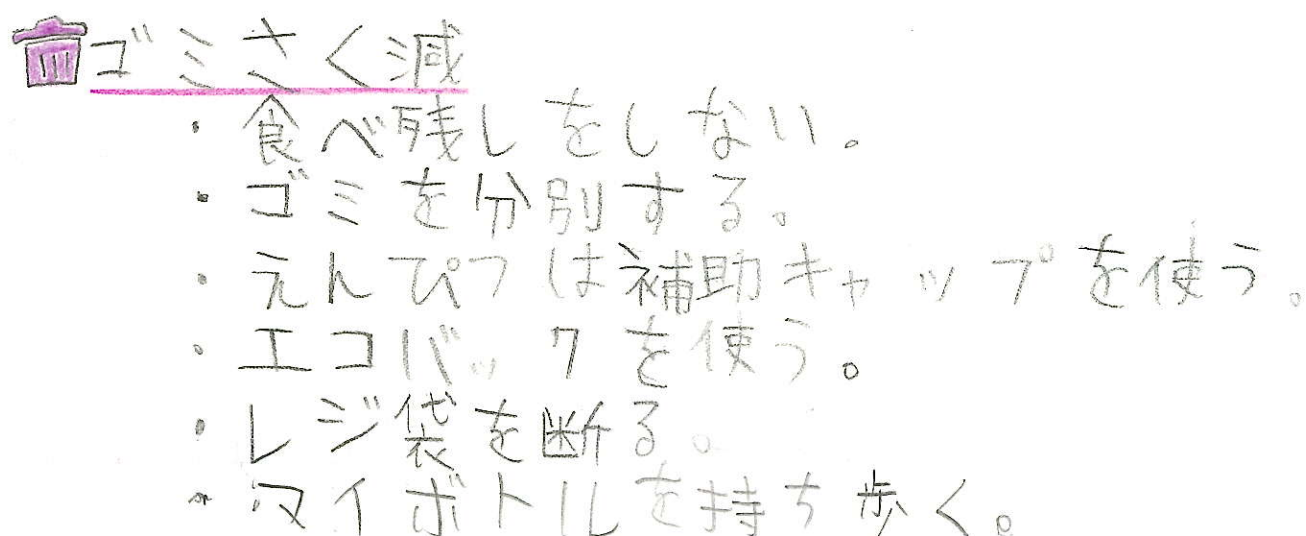 ゴミさく減
・食べ残しをしない。
・ゴミを分別する。
・えんぴつは補助キャップを使う。
・エコバックを使う。
・レジ袋を断る。
・マイボトルを持ち歩く。